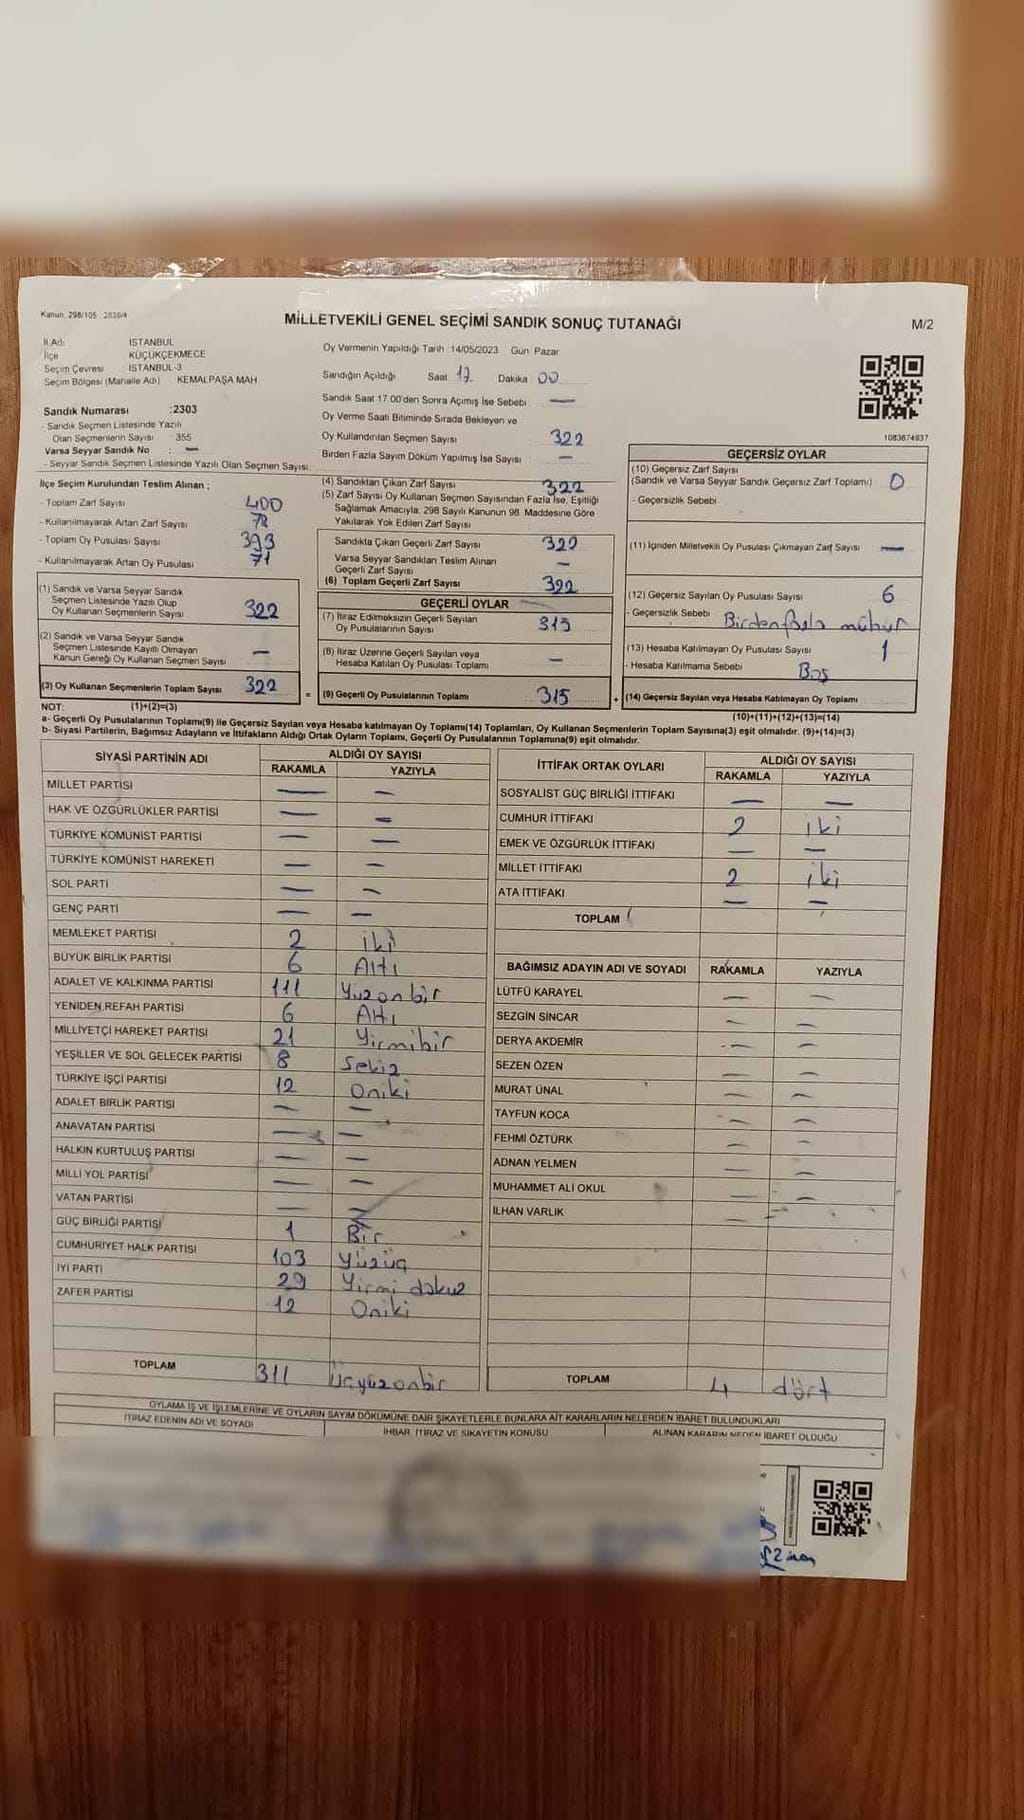 Kanun: 298/105 : 2839/4
MİLLETVEKİLİ GENEL SEÇİMİ SANDIK SONUÇ TUTANAĞI
M/2
İl Adı: İSTANBUL
İlçe KÜÇÜKÇEKMECE
Seçim Çevresi İSTANBUL-3
Seçim Bölgesi (Mahalle Adı) KEMALPAŞA MAH
Oy Vermenin Yapıldığı Tarih : 14/05/2023 Gün: Pazar
Sandığın Açıldığı Saat 17 Dakika 00
Sandık Saat 17:00'den Sonra Açımış İse Sebebi : —
Oy Verme Saati Bitiminde Sırada Bekleyen ve
Oy Kullandırılan Seçmen Sayısı 322
Birden Fazla Sayım Döküm Yapılmış İse Sayısı : —
Sandık Numarası :2303
- Sandık Seçmen Listesinde Yazılı
Olan Seçmenlerin Sayısı : 355
Varsa Seyyar Sandık No : —
- Seyyar Sandık Seçmen Listesinde Yazılı Olan Seçmen Sayısı
1083674937
İlçe Seçim Kurulundan Teslim Alınan ;
- Toplam Zarf Sayısı 400
- Kullanılmayarak Artan Zarf Sayısı 78
- Toplam Oy Pusulası Sayısı 393
- Kullanılmayarak Artan Oy Pusulası 71
(1) Sandık ve Varsa Seyyar Sandık
Seçmen Listesinde Yazılı Olup
Oy Kullanan Seçmenlerin Sayısı 322
(2) Sandık ve Varsa Seyyar Sandık
Seçmen Listesinde Kayıtlı Olmayan
Kanun Gereği Oy Kullanan Seçmen Sayısı —
(3) Oy Kullanan Seçmenlerin Toplam Sayısı 322 =
(4) Sandıktan Çıkan Zarf Sayısı 322
(5) Zarf Sayısı Oy Kullanan Seçmen Sayısından Fazla İse, Eşitliği
Sağlamak Amacıyla, 298 Sayılı Kanunun 98. Maddesine Göre
Yakılarak Yok Edilen Zarf Sayısı
Sandıkta Çıkan Geçerli Zarf Sayısı 322
Varsa Seyyar Sandıktan Teslim Alınan
Geçerli Zarf Sayısı —
(6) Toplam Geçerli Zarf Sayısı 322
GEÇERLİ OYLAR
(7) İtiraz Edilmeksizin Geçerli Sayılan
Oy Pusulalarının Sayısı 315
(8) İtiraz Üzerine Geçerli Sayılan veya
Hesaba Katılan Oy Pusulası Toplamı —
(9) Geçerli Oy Pusulalarının Toplamı 315 +
GEÇERSİZ OYLAR
(10) Geçersiz Zarf Sayısı
(Sandık ve Varsa Seyyar Sandık Geçersiz Zarf Toplamı) 0
- Geçersizlik Sebebi
(11) İçinden Milletvekili Oy Pusulası Çıkmayan Zarf Sayısı —
(12) Geçersiz Sayılan Oy Pusulası Sayısı 6
- Geçersizlik Sebebi : Birden fazla mühür
(13) Hesaba Katılmayan Oy Pusulası Sayısı 1
- Hesaba Katılmama Sebebi Boş
(14) Geçersiz Sayılan veya Hesaba Katılmayan Oy Toplamı
NOT: (1)+(2)=(3) (10)+(11)+(12)+(13)=(14)
a- Geçerli Oy Pusulalarının Toplamı(9) ile Geçersiz Sayılan veya Hesaba katılmayan Oy Toplamı(14) Toplamları, Oy Kullanan Seçmenlerin Toplam Sayısına(3) eşit olmalıdır. (9)+(14)=(3)
b- Siyasi Partilerin, Bağımsız Adayların ve İttifakların Aldığı Ortak Oyların Toplamı, Geçerli Oy Pusulalarının Toplamına(9) eşit olmalıdır.
SİYASİ PARTİNİN ADI ALDIĞI OY SAYISI
RAKAMLA YAZIYLA
MİLLET PARTİSİ — —
HAK VE ÖZGÜRLÜKLER PARTİSİ — —
TÜRKİYE KOMÜNİST PARTİSİ — —
TÜRKİYE KOMÜNİST HAREKETİ — —
SOL PARTİ — —
GENÇ PARTİ — —
MEMLEKET PARTİSİ 2 iki
BÜYÜK BİRLİK PARTİSİ 6 Altı
ADALET VE KALKINMA PARTİSİ 111 Yüzonbir
YENİDEN REFAH PARTİSİ 6 Altı
MİLLİYETÇİ HAREKET PARTİSİ 21 Yirmibir
YEŞİLLER VE SOL GELECEK PARTİSİ 8 Sekiz
TÜRKİYE İŞÇİ PARTİSİ 12 Oniki
ADALET BİRLİK PARTİSİ — —
ANAVATAN PARTİSİ — —
HALKIN KURTULUŞ PARTİSİ — —
MİLLİ YOL PARTİSİ — —
VATAN PARTİSİ — —
GÜÇ BİRLİĞİ PARTİSİ 1 Bir
CUMHURİYET HALK PARTİSİ 103 Yüzüç
İYİ PARTİ 29 Yirmi dokuz
ZAFER PARTİSİ 12 Oniki
TOPLAM 311 Üçyüzonbir
İTTİFAK ORTAK OYLARI ALDIĞI OY SAYISI
RAKAMLA YAZIYLA
SOSYALİST GÜÇ BİRLİĞİ İTTİFAKI — —
CUMHUR İTTİFAKI 2 iki
EMEK VE ÖZGÜRLÜK İTTİFAKI — —
MİLLET İTTİFAKI 2 iki
ATA İTTİFAKI — —
TOPLAM
BAĞIMSIZ ADAYIN ADI VE SOYADI RAKAMLA YAZIYLA
LÜTFÜ KARAYEL — —
SEZGİN SİNCAR — —
DERYA AKDEMİR — —
SEZEN ÖZEN — —
MURAT ÜNAL — —
TAYFUN KOCA — —
FEHMİ ÖZTÜRK — —
ADNAN YELMEN — —
MUHAMMET ALİ OKUL — —
İLHAN VARLIK — —
TOPLAM 4 dört
OYLAMA İŞ VE İŞLEMLERİNE VE OYLARIN SAYIM DÖKÜMÜNE DAİR ŞİKAYETLERLE BUNLARA AİT KARARLARIN NELERDEN İBARET BULUNDUKLARI
İTİRAZ EDENİN ADI VE SOYADI İHBAR, İTİRAZ VE ŞİKAYETİN KONUSU ALINAN KARARIN NEDEN İBARET OLDUĞU